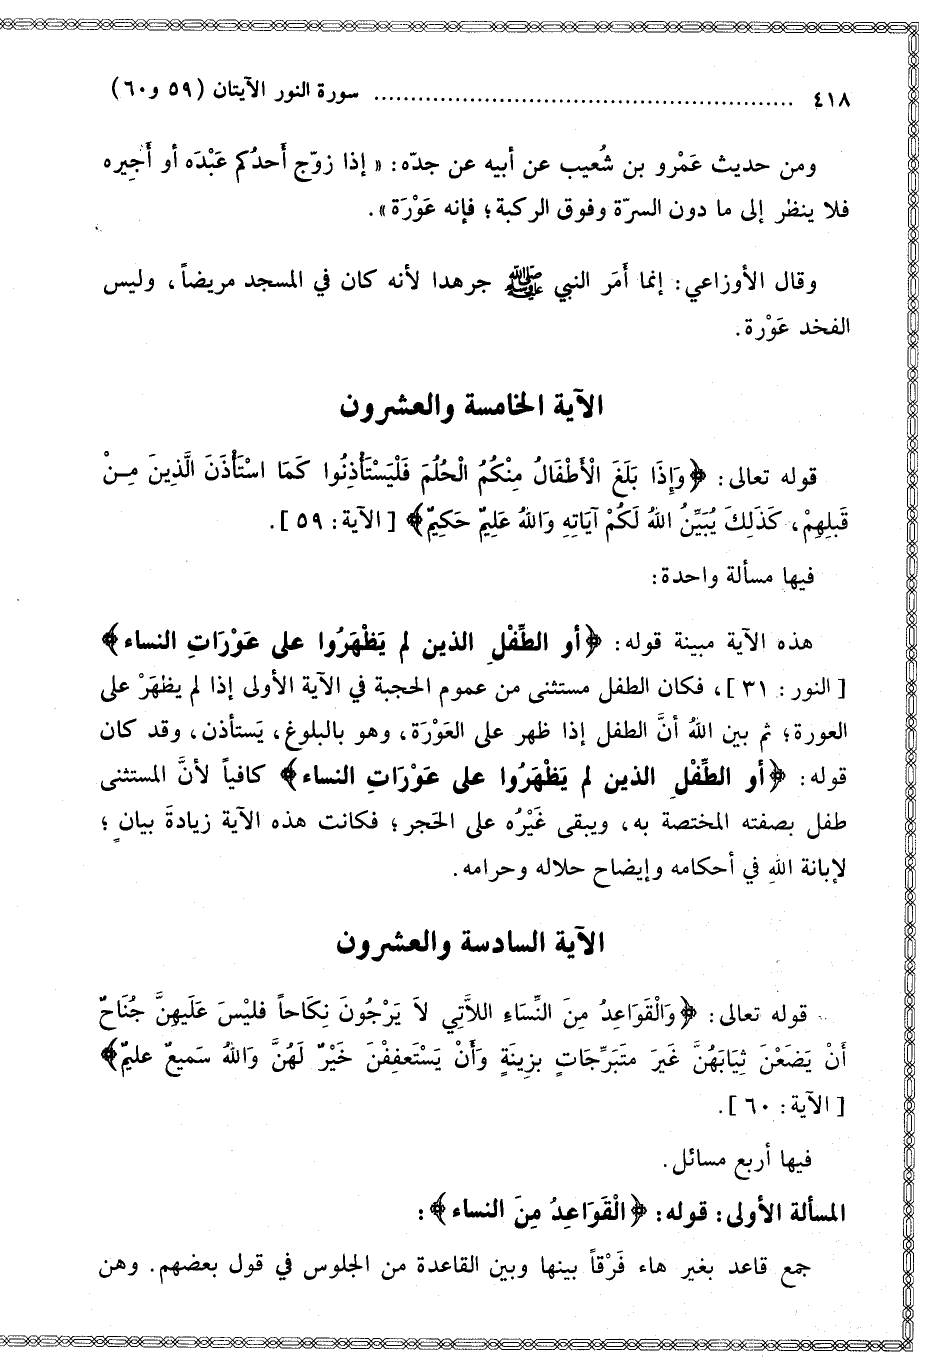 ٤١٨ ........................................................ سورة النور الآيتان (٥٩ و٦٠)
ومن حديث عَمْرو بن شُعيب عن أبيه عن جدّه: « إذا زوّج أَحدُكم عَبْدَه أو أَجِيره
فلا ينظر إلى ما دون السرّة وفوق الركبة؛ فإنه عَوْرَة».
وقال الأوزاعي: إنما أَمَر النبي ﷺ جرهدا لأنه كان في المسجد مريضاً، وليس
الفخد عَوْرة.
الآية الخامسة والعشرون
قوله تعالى: ﴿وَإِذَا بَلَغَ الْأَطْفَالُ مِنْكُمُ الْحُلُمَ فَلْيَسْتَأْذِنُوا كَمَا اسْتَأْذَنَ الَّذِينَ مِـنْ
قَبلِهِمْ، كَذَلِكَ يُبَيِّنُ اللهُ لَكُمْ آيَاتِهِ وَاللهُ عَلِيمٌ حَكِيمٌ﴾ [ الآية: ٥٩ ].
فيها مسألة واحدة:
هذه الآية مبينة قوله: ﴿أو الطِّفْلِ الذين لم يَظْهَرُوا على عَوْرَاتِ النساء﴾
[ النور: ٣١ ]، فكان الطفل مستثنى من عموم الحجبة في الآية الأولى إذا لم يظهَرْ على
العورة؛ ثم بين اللهُ أنَّ الطفل إذا ظهر على العَوْرَة، وهو بالبلوغ، يَستأذن، وقد كان
قوله: ﴿أو الطِّفْلِ الذين لم يَظْهَرُوا على عَوْرَاتِ النساء﴾ كافياً لأنَّ المستثنى
طفل بصفته المختصة به، ويبقى غَيْرُه على الحَجر؛ فكانت هذه الآية زيادةَ بيانٍ؛
لإبانة اللهِ في أحكامه وإيضاح حلاله وحرامه.
الآية السادسة والعشرون
قوله تعالى: ﴿وَالْقَوَاعِدُ مِنَ النِّسَاءِ اللاَّتِي لاَ يَرْجُونَ نِكَاحاً فليْسَ عَلَيهِنَّ جُنَاحٌ
أَنْ يَضَعْنَ ثِيَابَهُنَّ غَيرَ متَبَرِّجَاتٍ بزِينَةٍ وَأَنْ يَسْتَعفِفْنَ خَيْرٌ لَهُنَّ وَاللهُ سَميعٌ عليمٌ﴾
[ الآية: ٦٠ ].
فيها أربع مسائل.
المسألة الأولى: قوله: ﴿الْقَوَاعِدُ مِنَ النساء﴾:
جمع قاعد بغير هاء فَرْقاً بينها وبين القاعدة من الجلوس في قول بعضهم. وهن